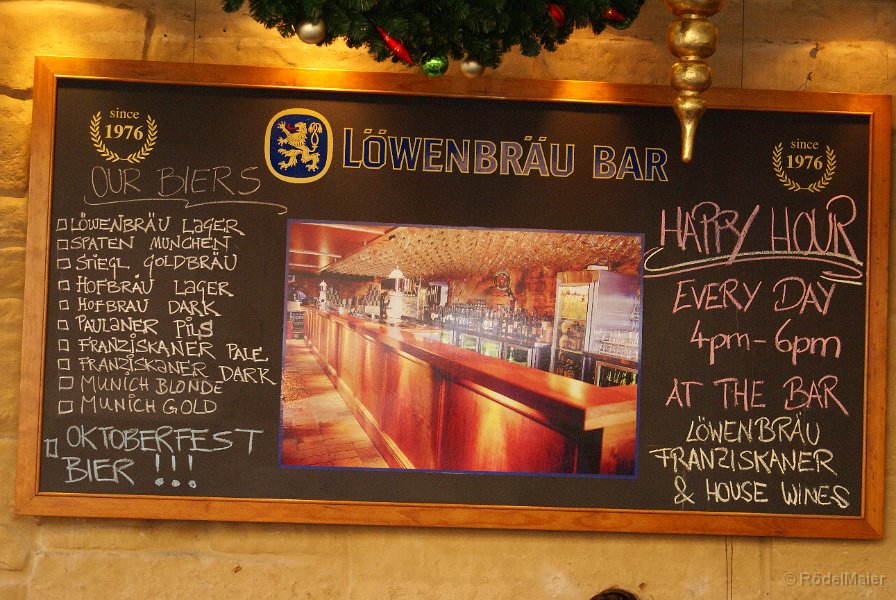 since
1976
LÖWENBRÄU BAR
since
1976
OUR BIERS
LÖWENBRÄU LAGER
SPATEN MUNCHEN
STIEGL GOLDBRÄU
HOFBRÄU LAGER
HOFBRAU DARK
PAULANER PILS
FRANZISKANER PALE
FRANZISKANER DARK
MUNICH BLONDE
MUNICH GOLD
OKTOBERFEST
BIER !!!
HAPPY HOUR
EVERY DAY
4pm-6pm
AT THE BAR
LÖWENBRÄU
FRANZISKANER
& HOUSE WINES
© RödelMaier